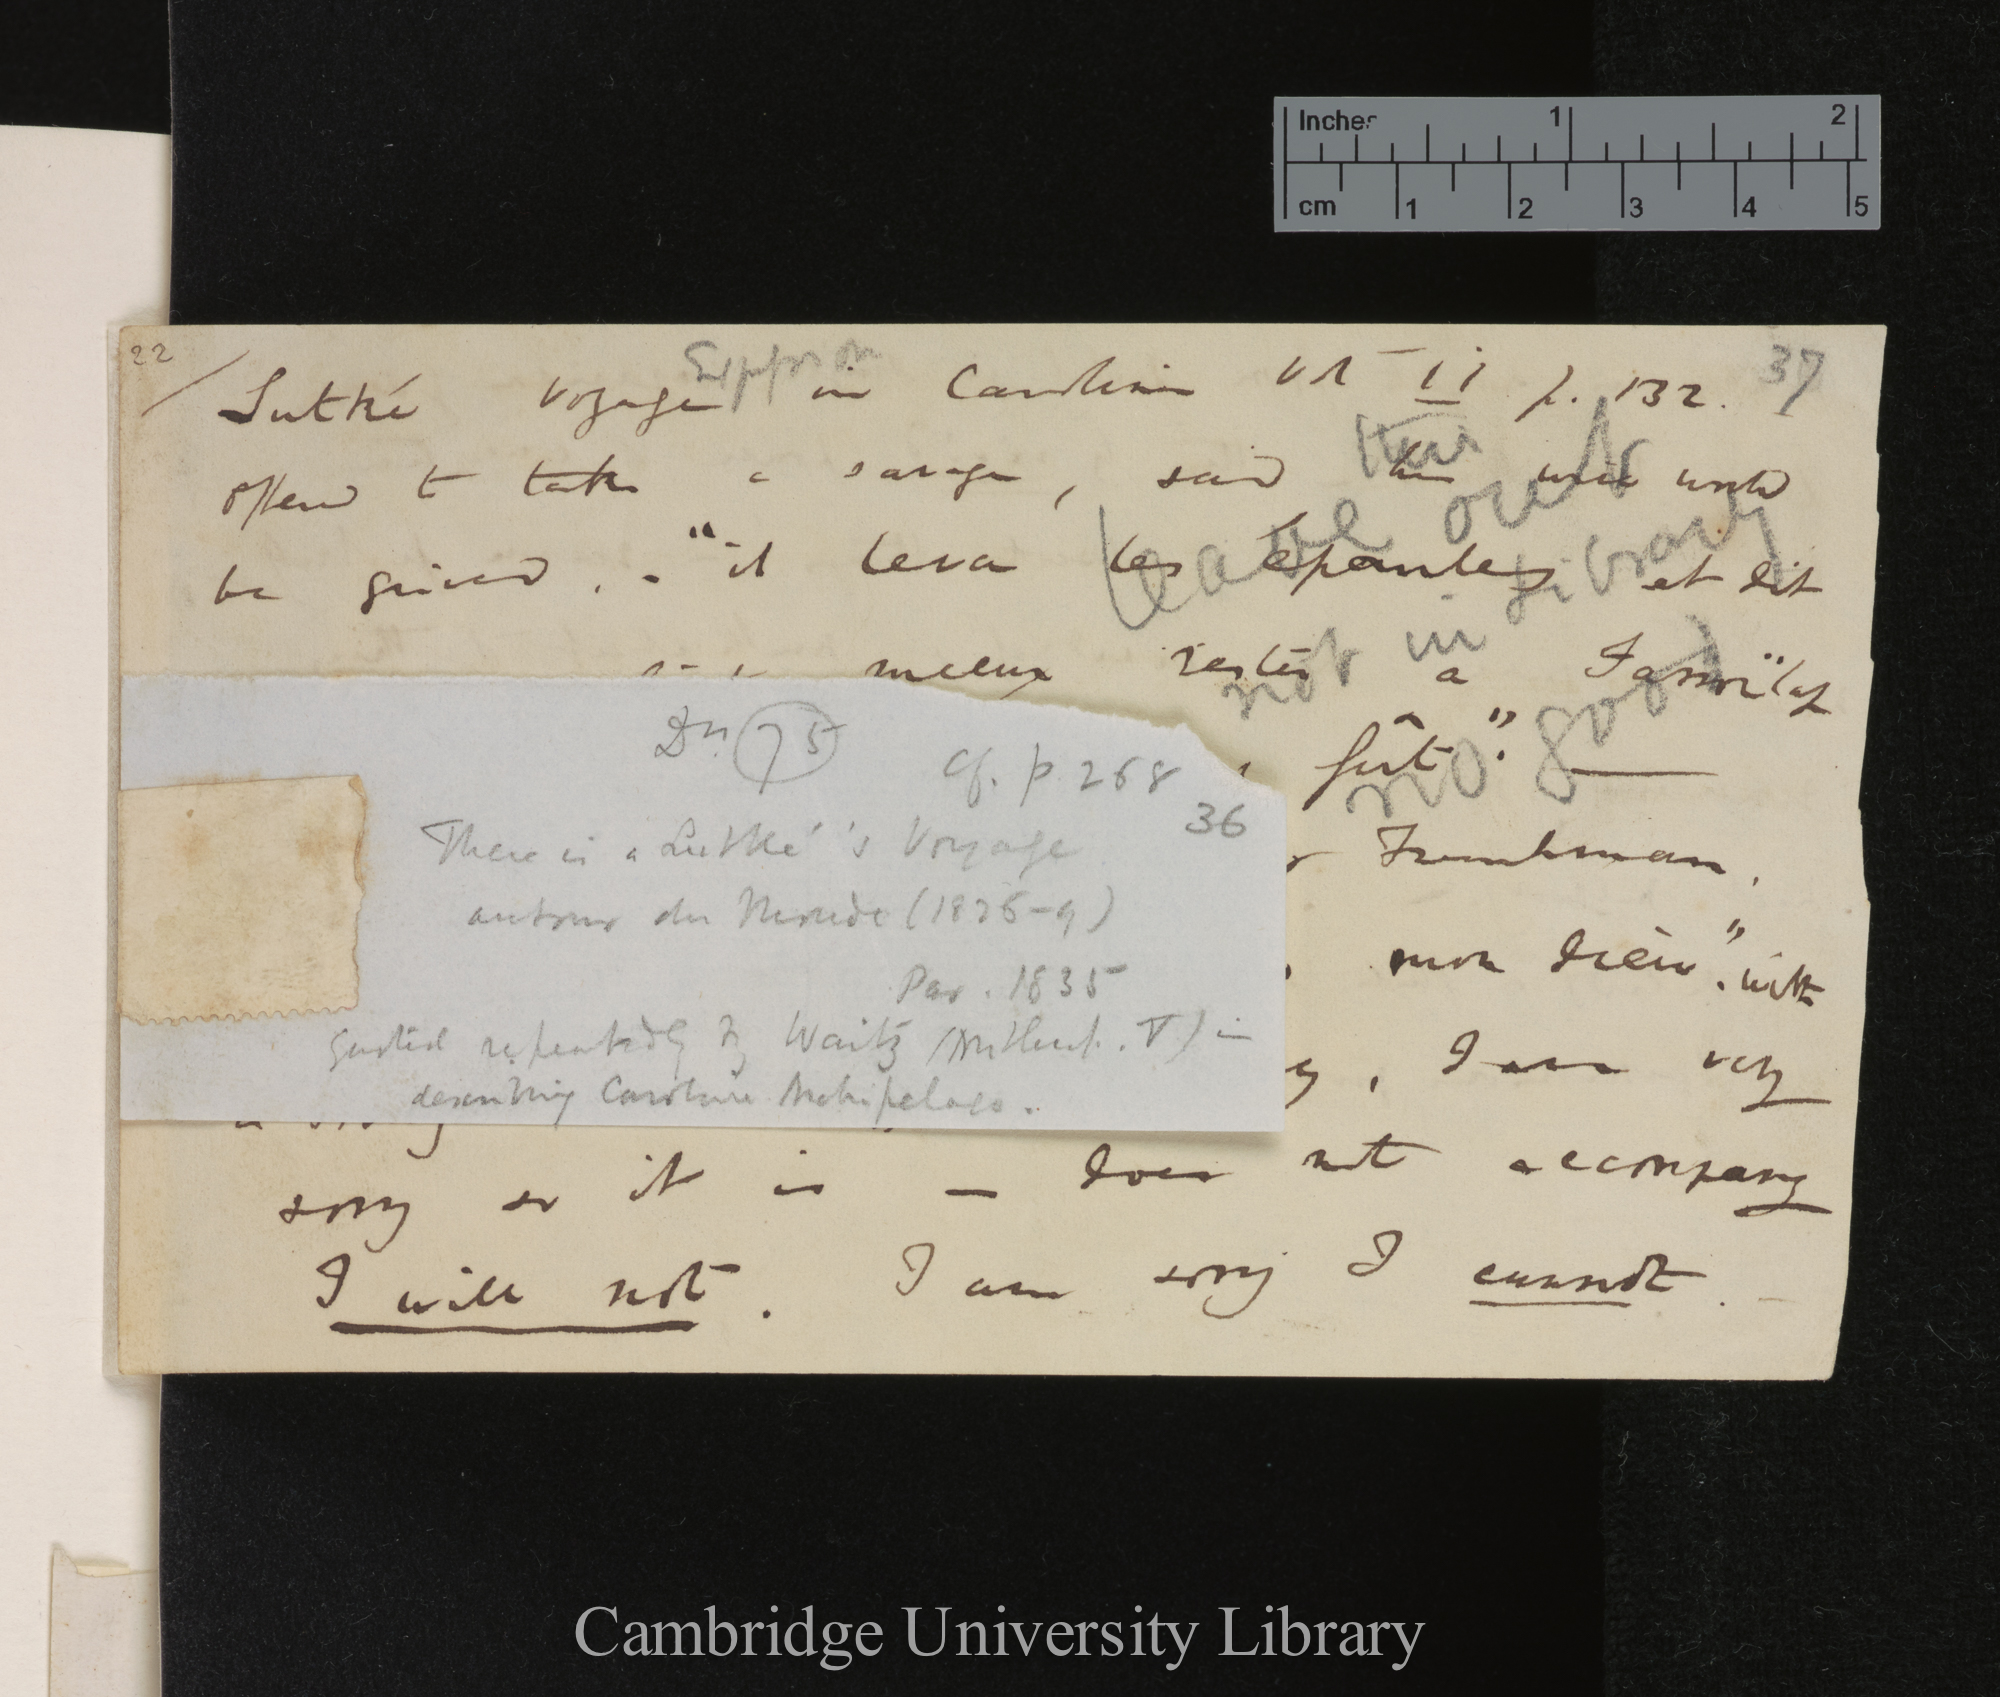 Inches 1 2
cm 1 2 3 4 5
22
37
Lutké Voyage in Carolina Vol II p. 132.
offered to take a savage, said his wife would
be grieved, . "il leva les épaules et dit
mieux rester a
fût".
Frenchman,
mon dieu". with
, I am very
sorry so it is — does not accompany
I will not. I am sorry I cannot.
leave out
not in library
no good
75
Cf. p. 268
36
There is a Lutké's Voyage
autour du Monde (1826-9)
Par. 1835
quoted repeatedly by Waitz (Anthrop. V) in
describing Caroline Archipelago.
Cambridge University Library